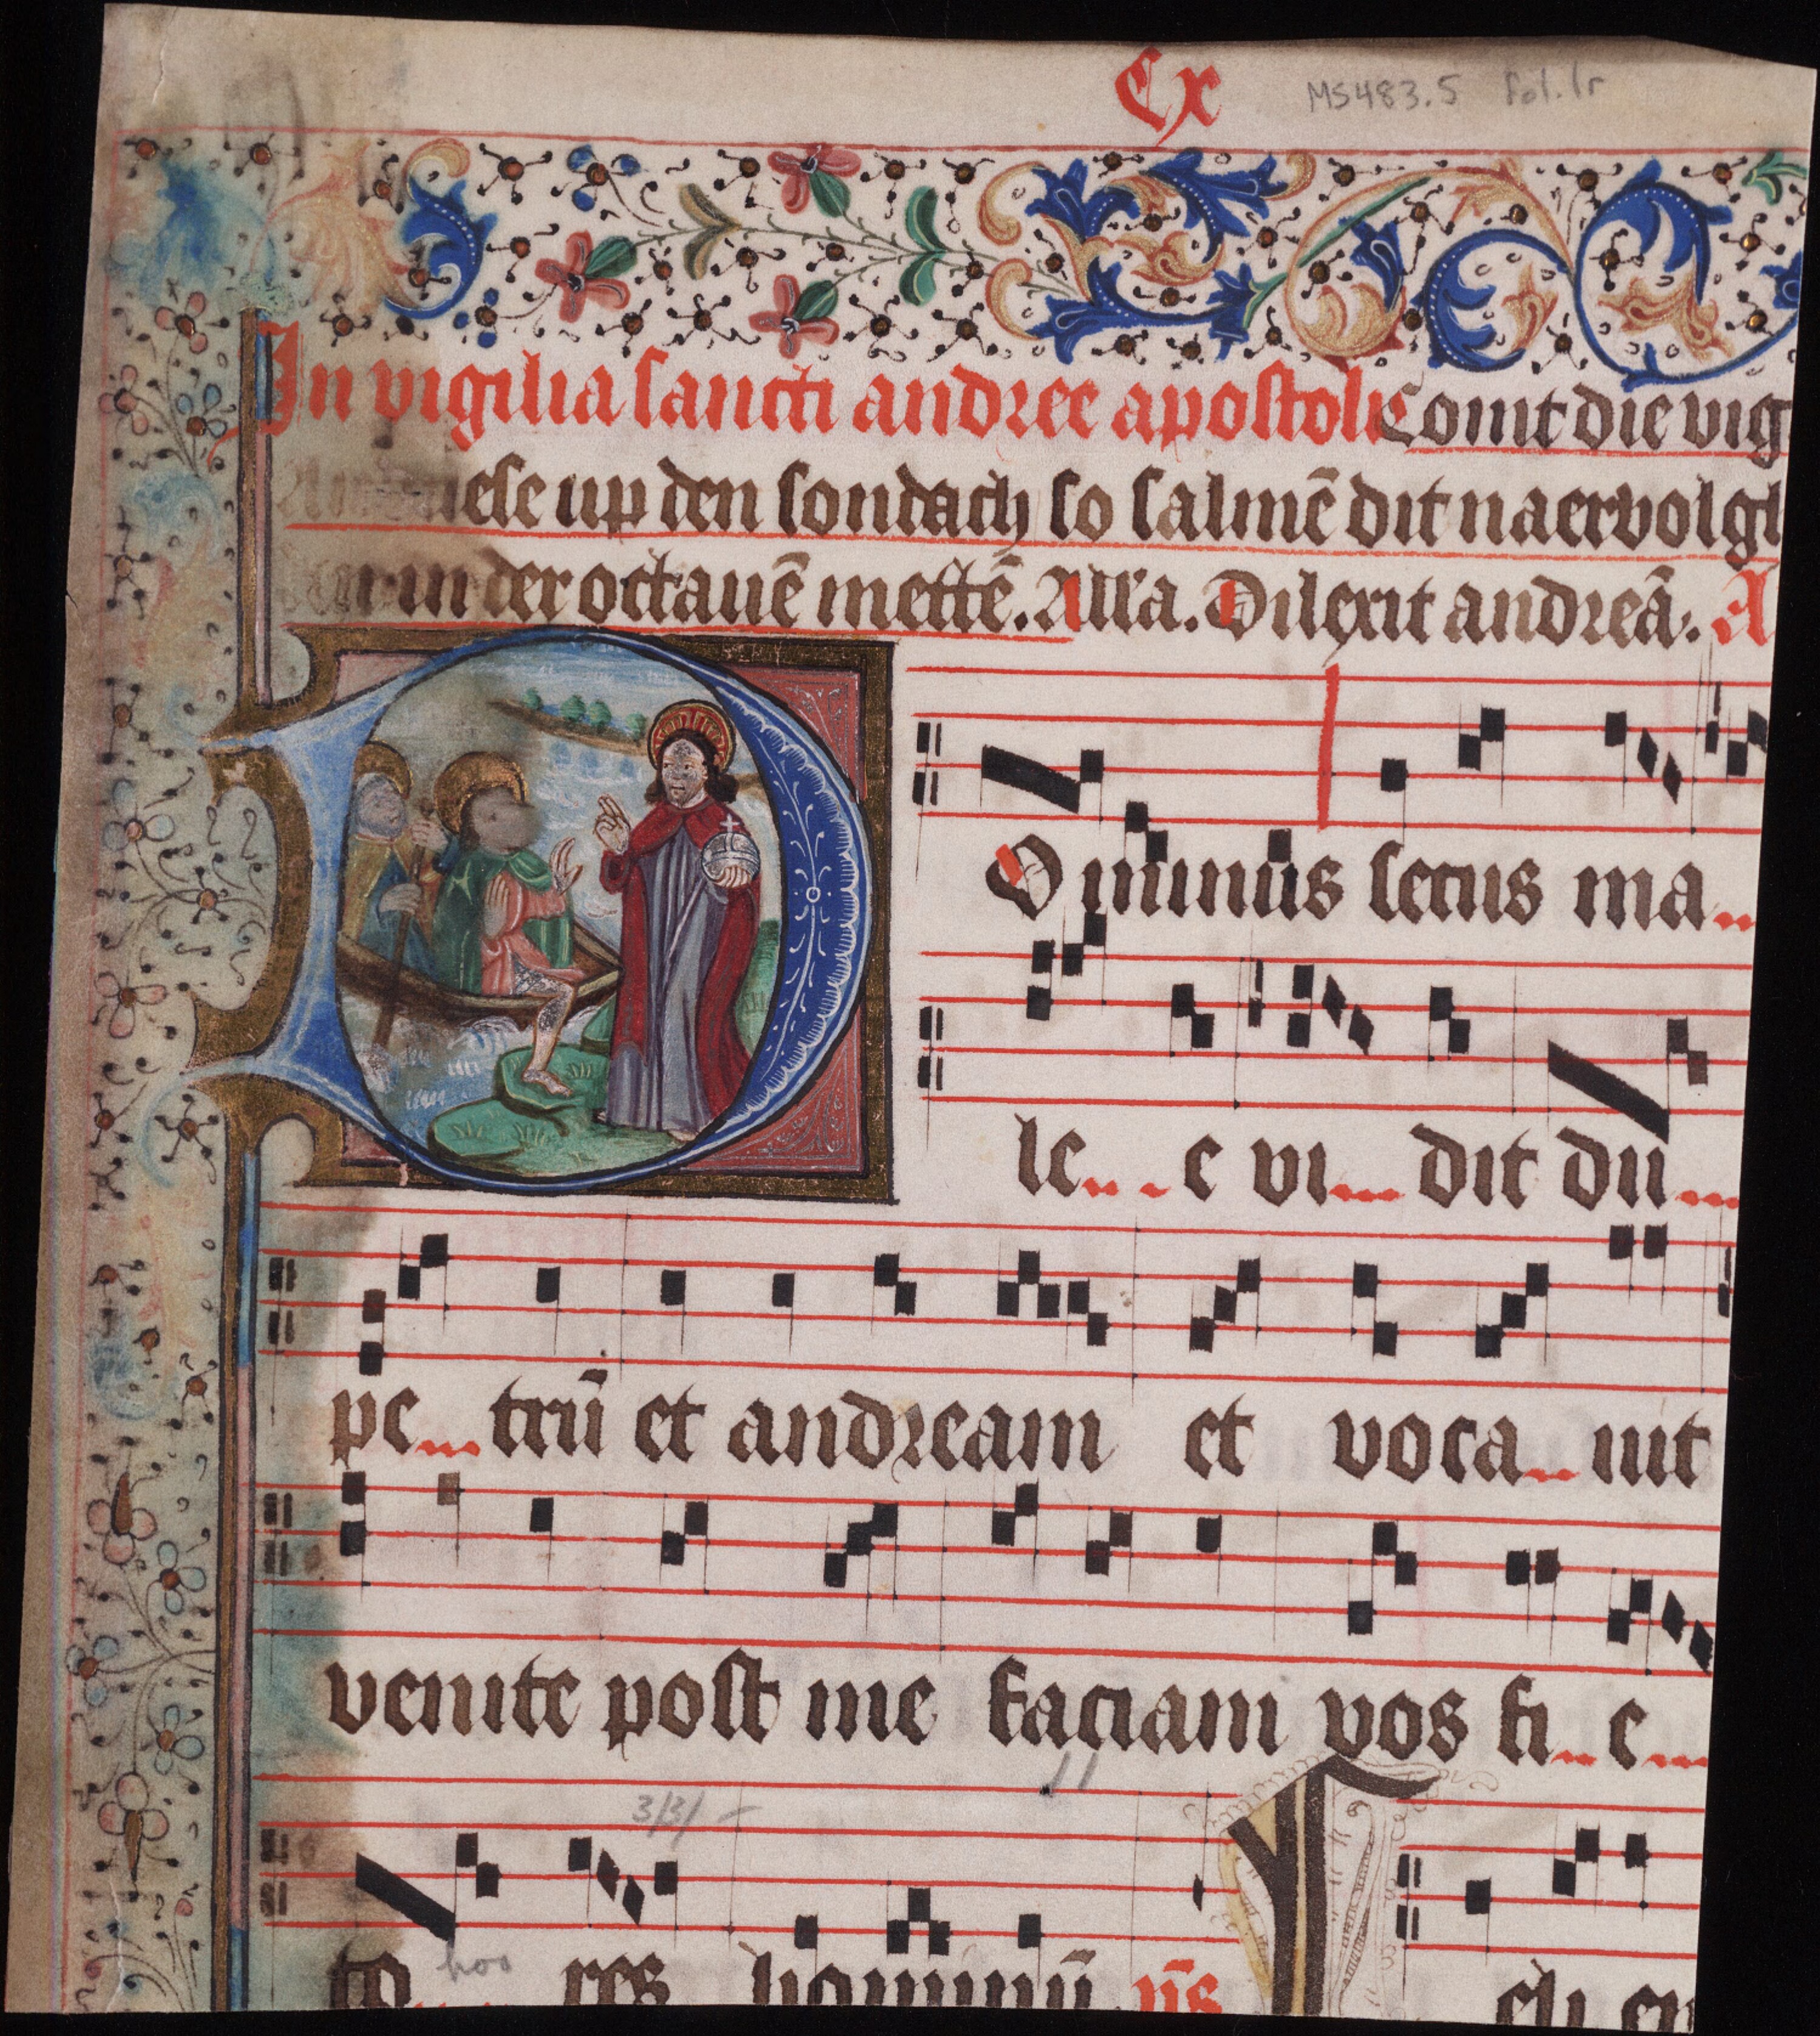 Cx MS483.5 fol.1r
In vigilia sancti andree apostoli Comt die vig
ese up den sondach so salmē dit naervolgt
in der octauē mettē. Alla. Dilexit andreā. A
Dominus secus ma
le e vi dit dn
pe trū et andream et voca uit
venite post me faciam vos fi e
3/3/ -
hoo
to res hominū v̄s
ch en